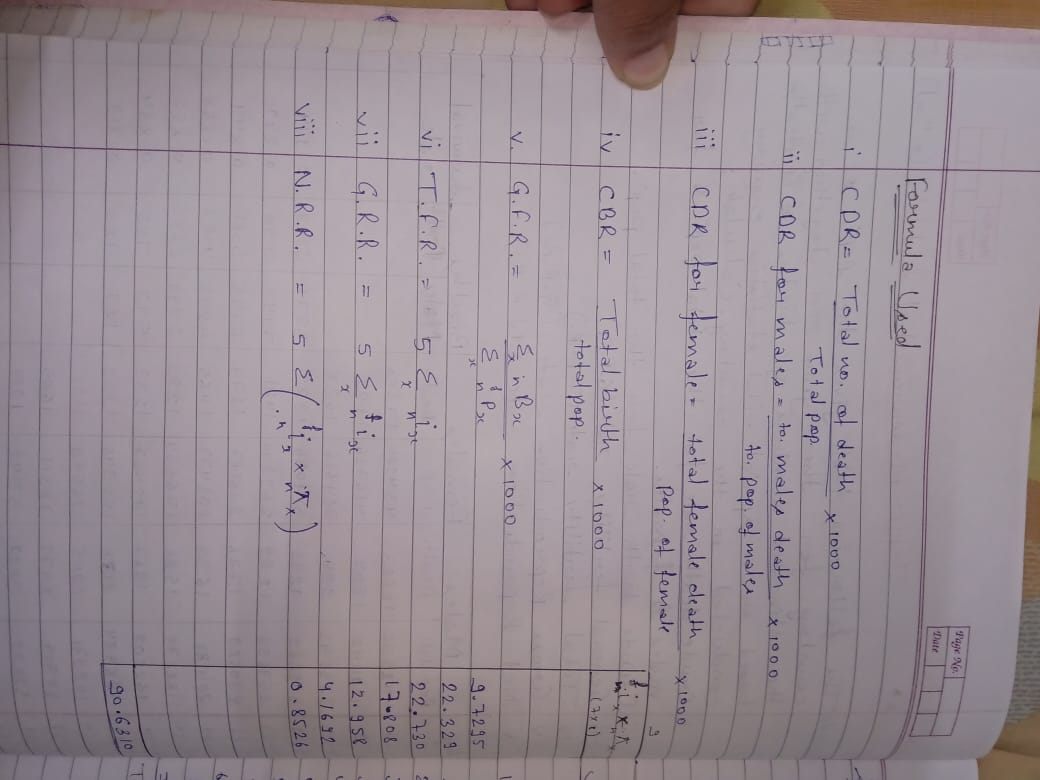 Page No.
Date
Formula Used
i CDR = Total no. of death / Total pop. × 1000
ii CDR for males = to. males death / to. pop. of males × 1000
iii CDR for female = total female death / Pop. of female × 1000
iv CBR = Total birth / total pop. × 1000
v. G.F.R. = Σx nBx / Σx nfPx × 1000
vi T.F.R. = 5 Σx nix
vii G.R.R. = 5 Σx nfix
viii N.R.R. = 5 Σ (nfix × nπx)
(7×8)
9.7295
22.329
22.730
17.808
12.958
4.1692
0.8526
90.6310